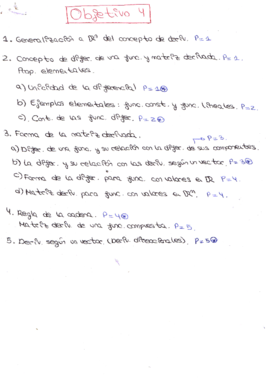 Objetivo 4
1. Generalización a ℝⁿ del concepto de deriv. P=1
2. Concepto de difer. de una func. y matriz derivada. P=1.
Prop. elementales.
a) Unicidad de la diferencial P=1
b) Ejemplos elementales: func. const. y func. lineales. P=2.
c) Cont. de las func. difer. P=2
3. Forma de la matriz derivada.
P=3.
a) Difer. de una func. y su relación con la difer. de sus componentes.
b) La difer. y su relación con las deriv. según un vector. P=3
c) Forma de la difer. para func. con valores en ℝ P=4.
d) Matriz deriv. para func. con valores en ℝᵐ. P=4.
4. Regla de la cadena. P=4
Matriz deriv. de una func. compuesta. P=5
5. Deriv. según un vector (Deriv. direccionales). P=5